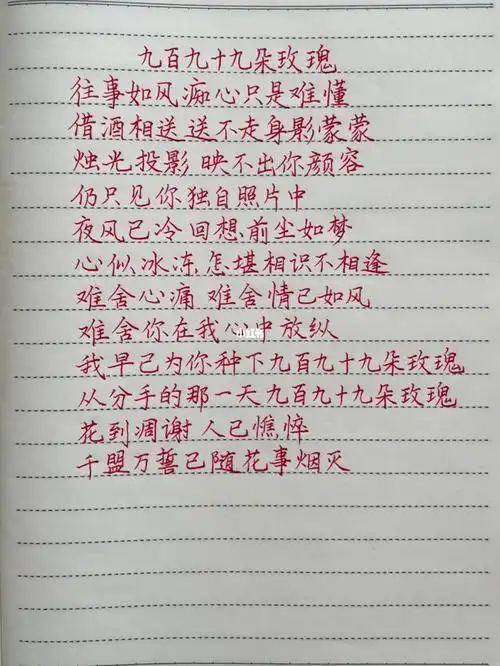 九百九十九朵玫瑰
往事如风痴心只是难懂
借酒相送送不走身影蒙蒙
烛光投影映不出你颜容
仍只见你独自照片中
夜风已冷回想前尘如梦
心似冰冻,怎堪相识不相逢
难舍心痛难舍情已如风
难舍你在我心中放纵
我早已为你种下九百九十九朵玫瑰
从分手的那一天九百九十九朵玫瑰
花到凋谢人已憔悴
千盟万誓已随花事烟灭
小红书